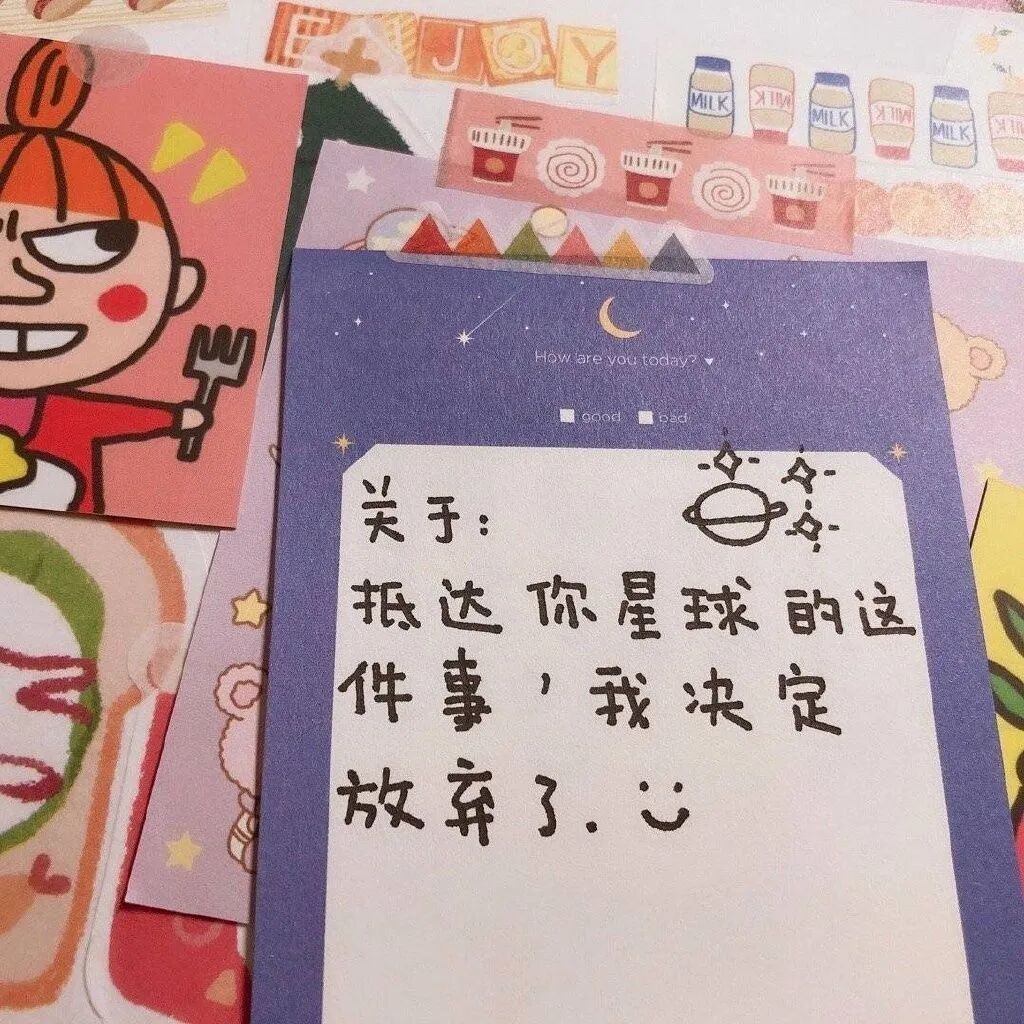 ENJOY
MILK MILK MILK MILK MILK MILK
How are you today?
good bad
关于:
抵达你星球的这
件事，我决定
放弃了.